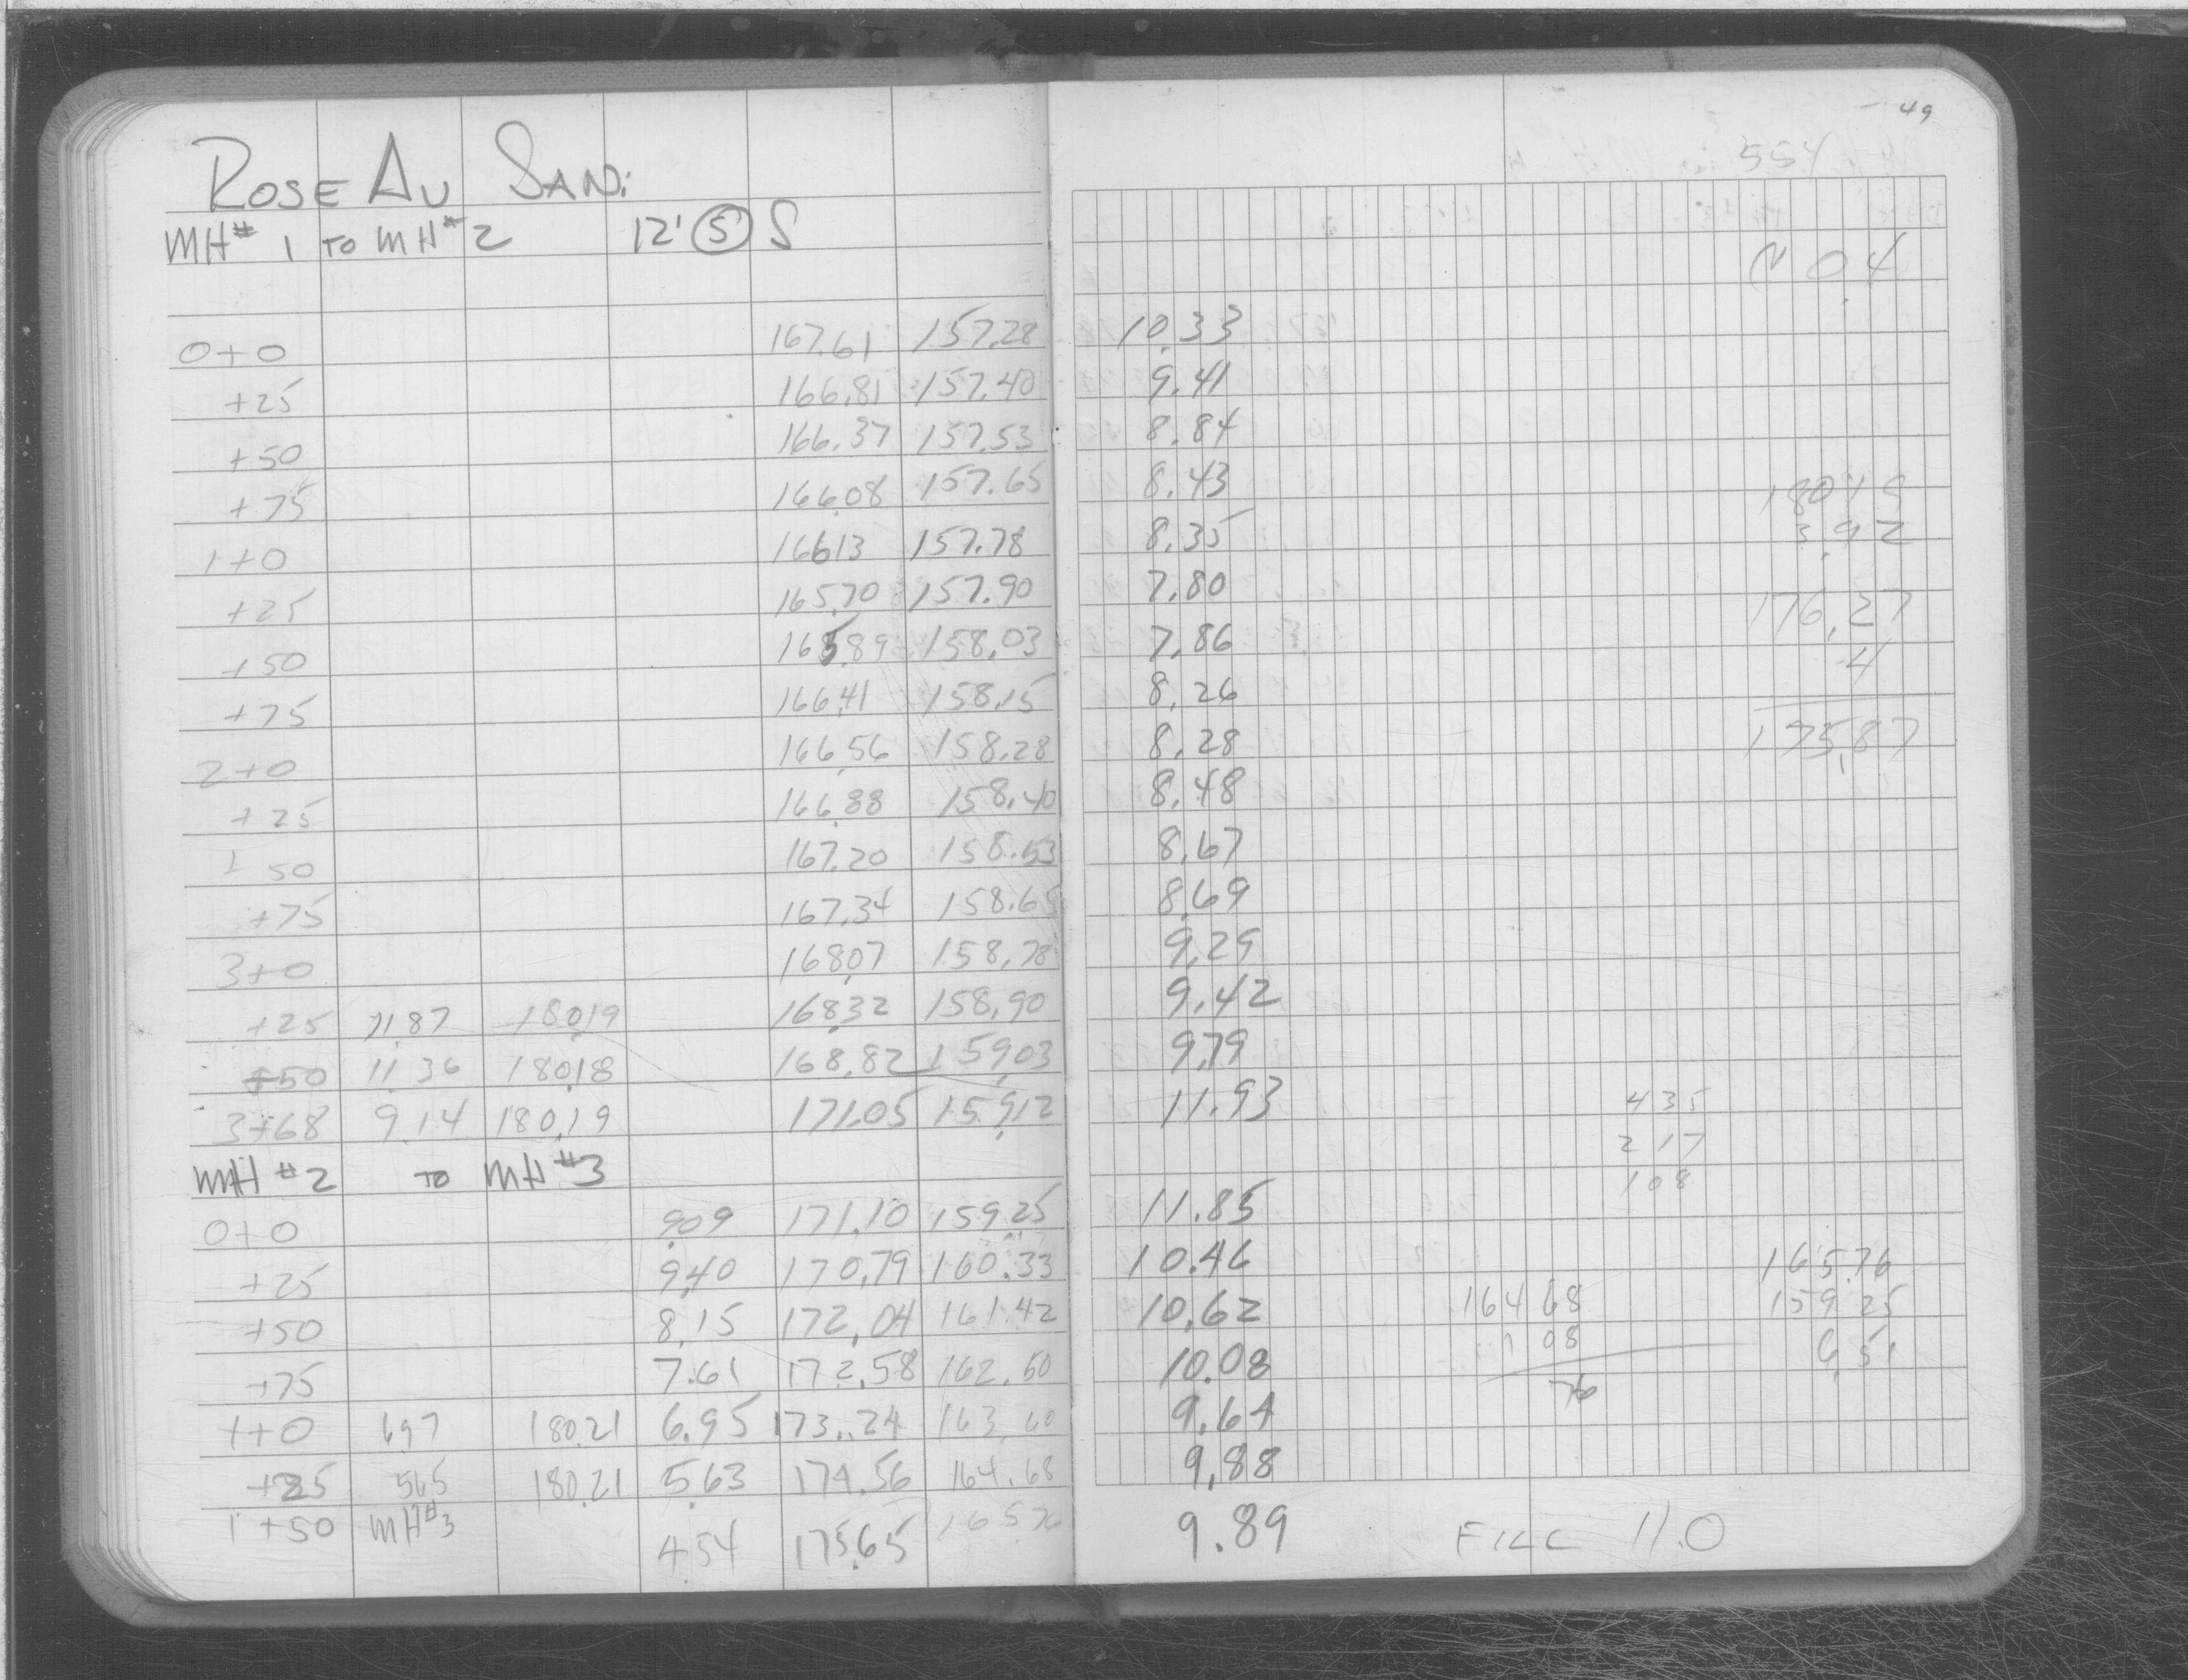 49
554
ROSE AV SANI
MH# 1 TO MH# 2 12' (5) S
N 0.4
0+0 167.61 157.28 10.33
+25 166.81 157.40 9.41
+50 166.37 157.53 8.84
+75 166.08 157.65 8.43
180 19
1+0 166.13 157.78 8.35
3.92
+25 165.70 157.90 7.80
176.27
+50 165.89 158.03 7.86
.4
+75 166.41 158.15 8.26
2+0 166.56 158.28 8.28
175.87
+25 166.88 158.40 8.48
+50 167.20 158.53 8.67
+75 167.34 158.65 8.69
3+0 168.07 158.78 9.29
+25 11.87 180.19 168.32 158.90 9.42
+50 11.36 180.18 168.82 159.03 9.79
3+68 9.14 180.19 171.05 159.12 11.93
435
217
108
MH #2 TO MH #3
0+0 9.09 171.10 159.25 11.85
+25 9.40 170.79 160.33 10.46
165.76
+50 8.15 172.04 161.42 10.62
164 68 159 25
+75 7.61 172.58 162.50 10.08
1 08 6.51
76
1+0 697 180.21 6.95 173.24 163.60 9.64
+25 565 180.21 5.63 174.56 164.68 9.88
1+50 MH#3 4.54 175.65 165 76 9.89 FILL 11.0